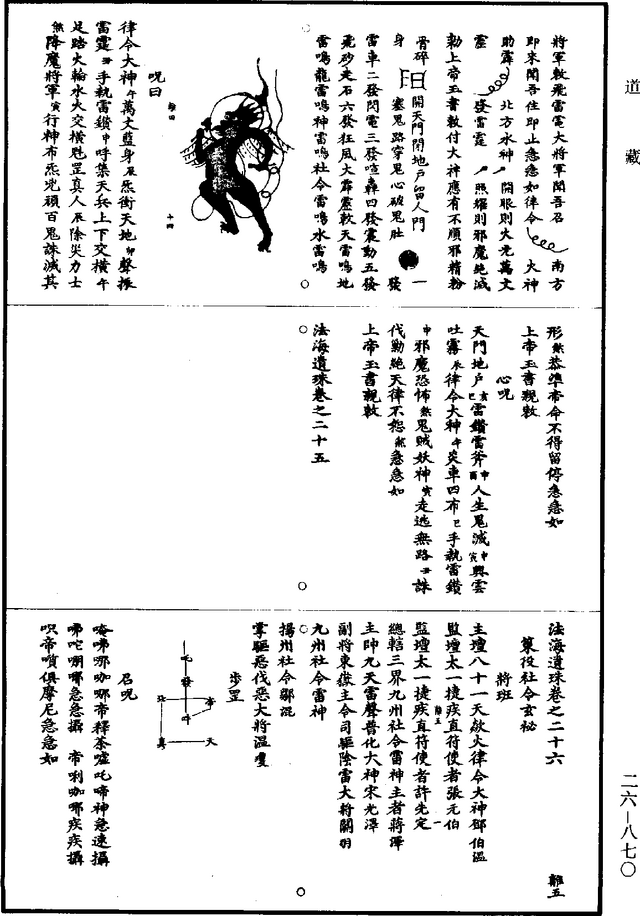 道藏
將軍敕飛雷電大將軍聞吾召
即來聞吾住即止急急如律令 大神 南方
助霹 北方水神 開眼則火光萬丈
靈 發雷霆 照耀則邪魔絕滅
勑上帝玉書敕付大神應有不順邪精粉
骨碎 開天門閉地戶留人門
身 塞鬼路穿鬼心破鬼肚 發一
雷車二發閃電三發喧轟四發震動五發
飛砂走石六發狂風大霹靂敕天雷鳴地
雷鳴龍雷鳴神雷鳴社令雷鳴水雷鳴
咒曰
律令大神午萬丈藍身辰炁衝天地卯聲振
雷霆丑手執雷鑽申呼集天兵上下交橫午
足踏火輪水火交橫魁罡真人辰除災力士
無降魔將軍寅行神布炁兇頑百鬼誅滅其
形無恭準帝命不得留停急急如
上帝玉書親敕
心咒
天門地戶亥雷鑽雷斧申酉人生鬼滅申寅興雲
吐霧辰律令大神午炎車四布巳手執雷鑽
申邪魔恐怖無鬼賊妖神寅走逃無路丑誅
代勦絕天律不恕無急急如
上帝玉書親敕
法海遺珠卷之二十五
法海遺珠卷之二十六 離五
策役社令玄秘
將班
主壇八十一天歘火律令大神鄧伯溫
監壇太一捷疾直符使者張元伯
監壇太一捷疾直符使者許先定
總轄三界九州社令雷神主者蔣澤
主帥九天雷聲普化大神宋光澤
副將東嶽主令司驅除雷大將關羽
九州社令雷神
揚州社令鄒混
掌驅惡伐惡大將溫瓊
步罡
帝
天
北
真
召咒
唵嚩哪咖哪帝釋荼噓吒啼神急速攝
嚩咜嘣哪急急攝 帝唎咖哪疾疾攝
唄帝噴俱摩尼急急如
二六—八七〇